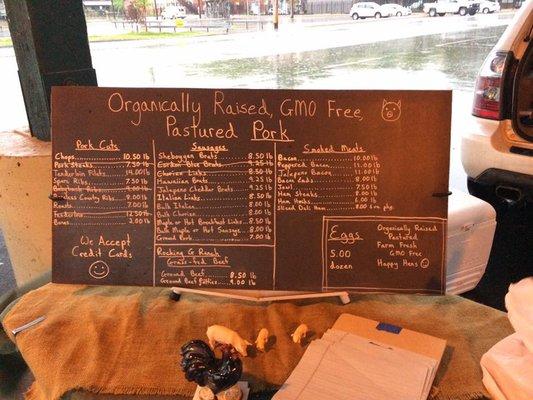 Organically Raised, GMO Free,
Pastured Pork
Pork Cuts
Chops 10.50 lb
Pork Steaks 7.50 lb
Tenderloin Filets 14.00 lb
Spare Ribs 7.50 lb
Country Ribs 9.50 lb
Roasts 7.00 lb
12.50 lb
Bones 2.00 lb
We Accept
Credit Cards
Sausages
Sheboygan Brats 8.50 lb
Cordon Bleu Brats 9.25 lb
Chorizo Links 8.50 lb
Hawaiian Brats 9.25 lb
Jalapeno Cheddar Brats 9.25 lb
Italian Links 8.50 lb
Bulk Italian 8.00 lb
Bulk Chorizo 8.00 lb
Maple or Hot Breakfast Links 8.50 lb
Bulk Maple or Hot Sausage 8.00 lb
Ground Pork 7.00 lb
Rocking G Ranch
Grass-fed Beef
Ground Beef 8.50 lb
Ground Beef Patties 9.00 lb
Smoked Meats
Bacon 10.00 lb
Peppered Bacon 11.00 lb
Jalapeno Bacon 11.00 lb
Bacon Ends 8.00 lb
Jowl 7.50 lb
Ham Steaks 8.00 lb
Ham Hocks 6.00 lb
Sliced Deli Ham 8.00 per pkg
Eggs
5.00
dozen
Organically Raised
Pastured
Farm Fresh
GMO Free
Happy Hens